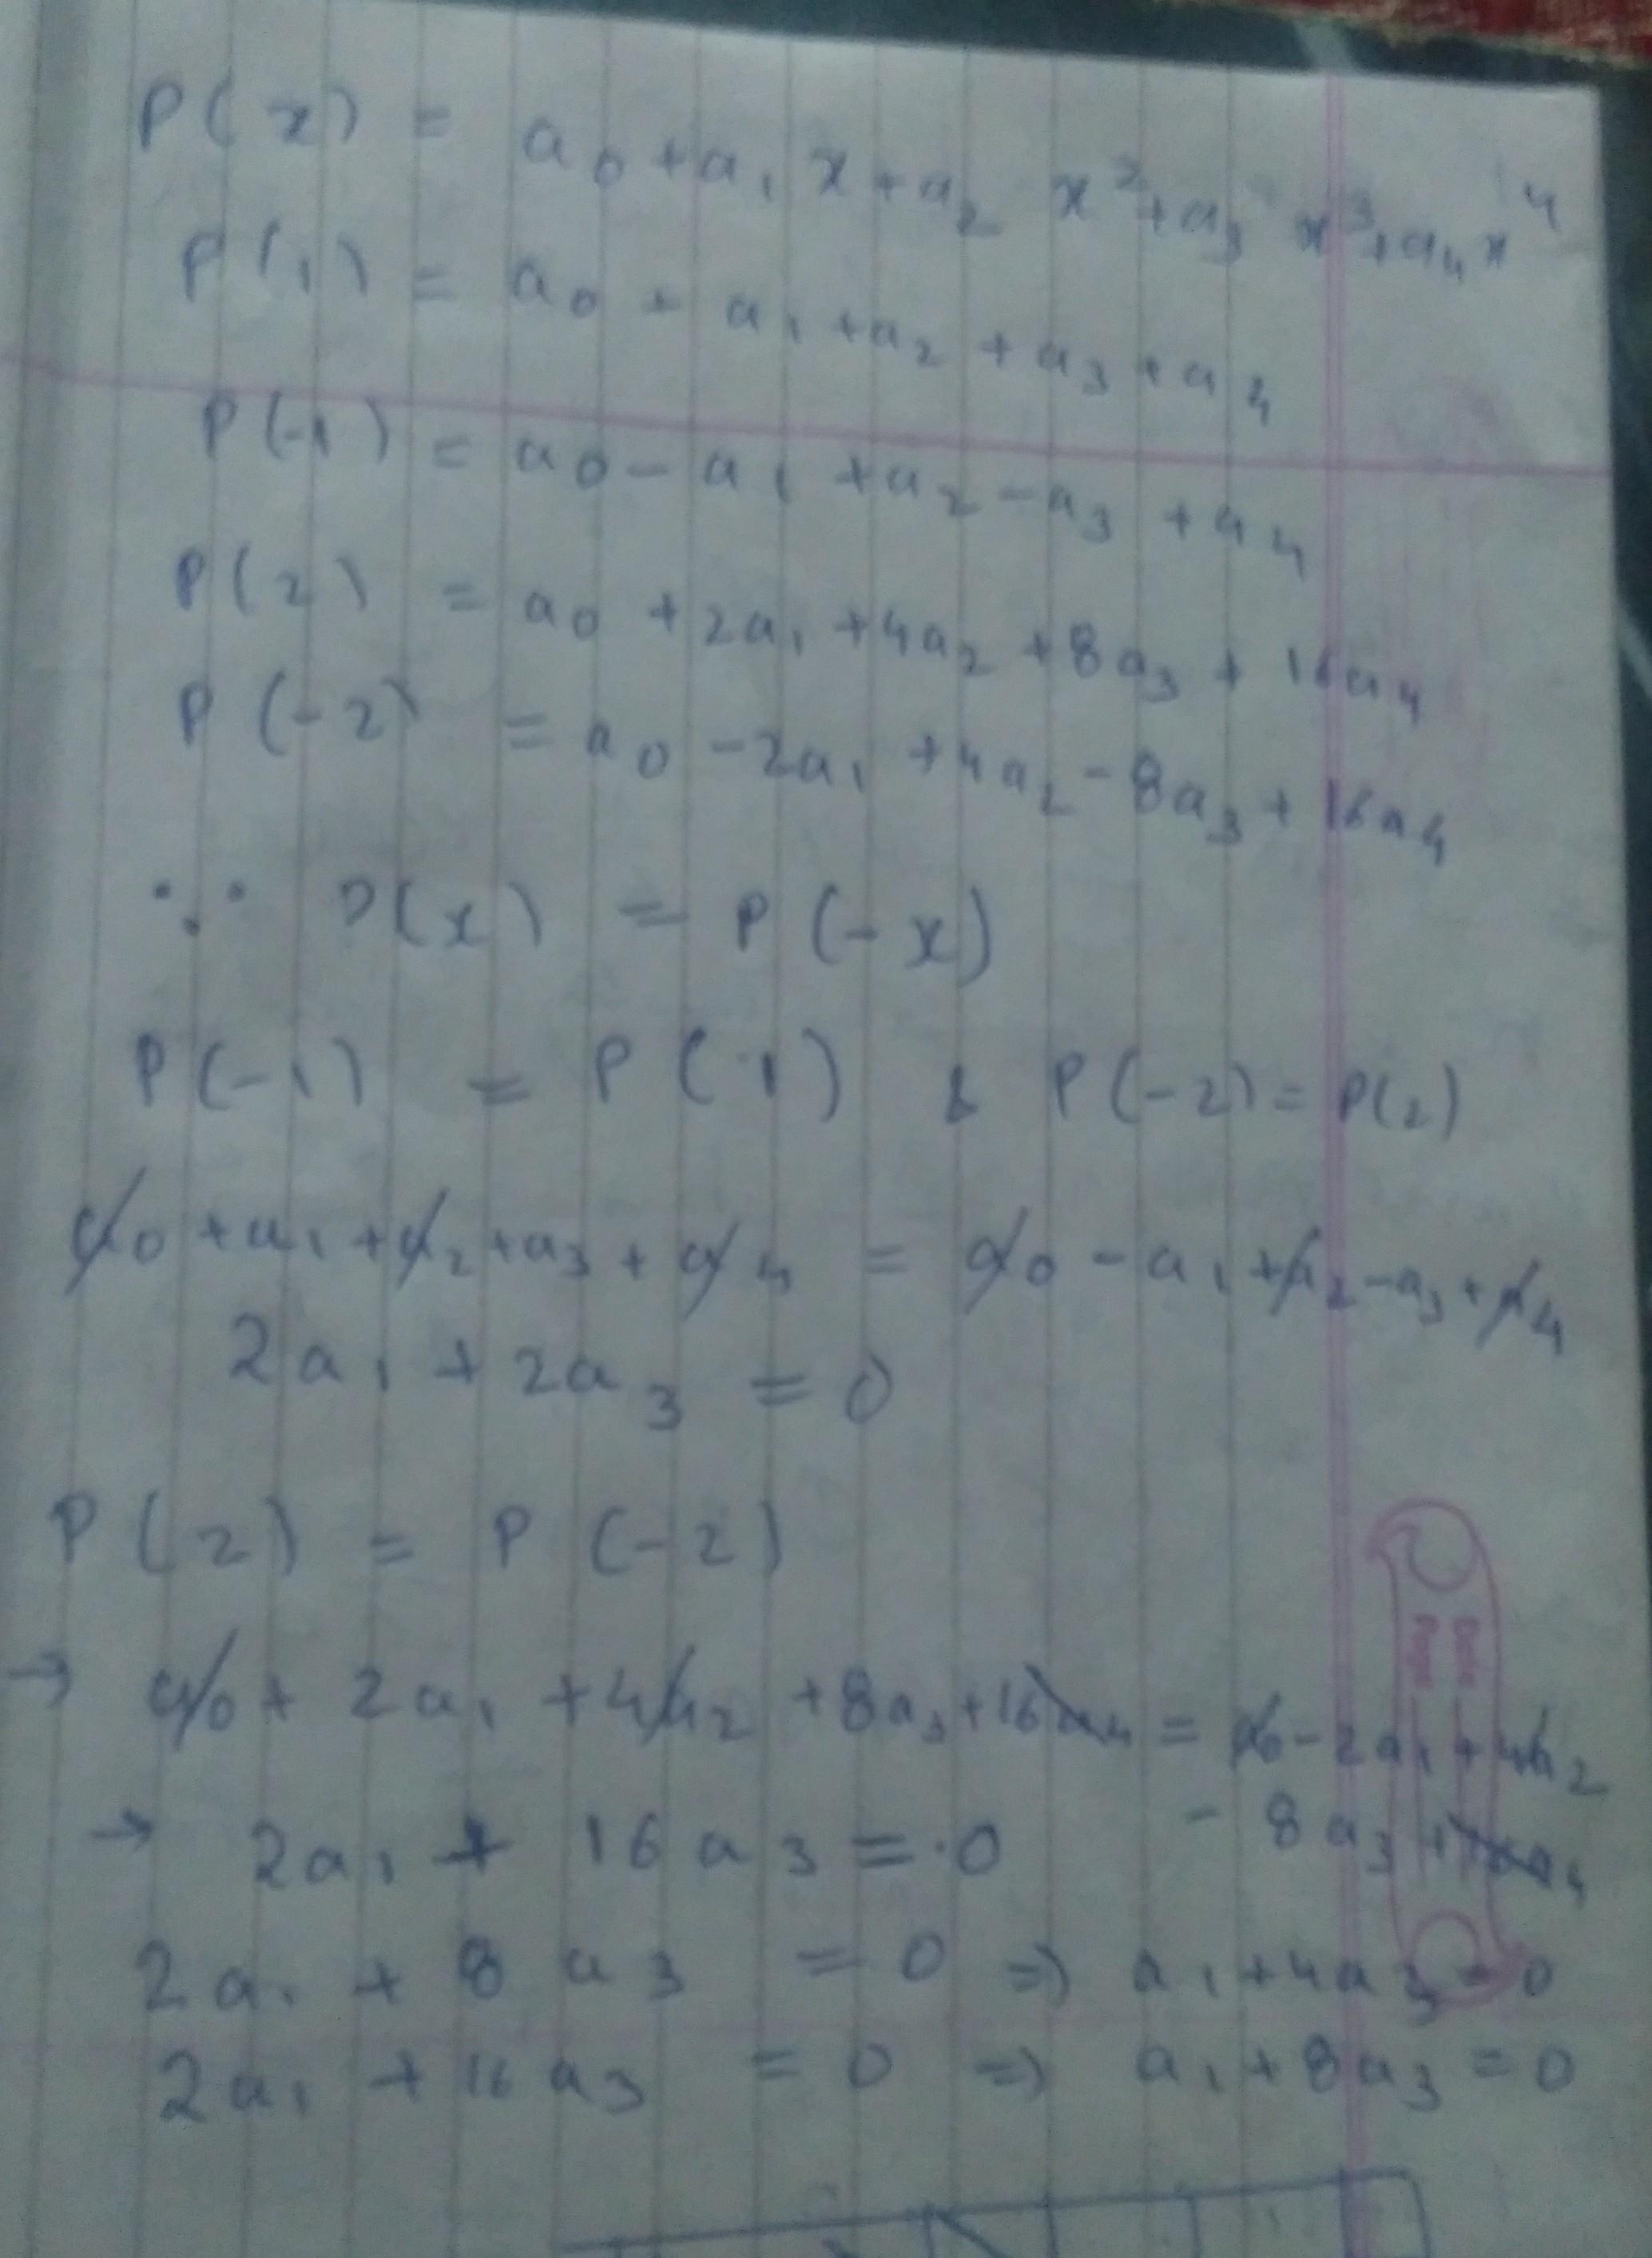 P(x) = a₀ + a₁ x + a₂ x² + a₃ x³ + a₄ x⁴
P(1) = a₀ + a₁ + a₂ + a₃ + a₄
P(-1) = a₀ - a₁ + a₂ - a₃ + a₄
P(2) = a₀ + 2a₁ + 4a₂ + 8a₃ + 16a₄
P(-2) = a₀ - 2a₁ + 4a₂ - 8a₃ + 16a₄
∵ P(x) = P(-x)
P(-1) = P(1) & P(-2) = P(2)
a₀ + a₁ + a₂ + a₃ + a₄ = a₀ - a₁ + a₂ - a₃ + a₄
2a₁ + 2a₃ = 0
P(2) = P(-2)
→ a₀ + 2a₁ + 4a₂ + 8a₃ + 16a₄ = a₀ - 2a₁ + 4a₂
- 8a₃ + 16a₄
→ 2a₁ + 16a₃ = 0
2a₁ + 8a₃ = 0 ⇒ a₁ + 4a₃ = 0
2a₁ + 16a₃ = 0 ⇒ a₁ + 8a₃ = 0